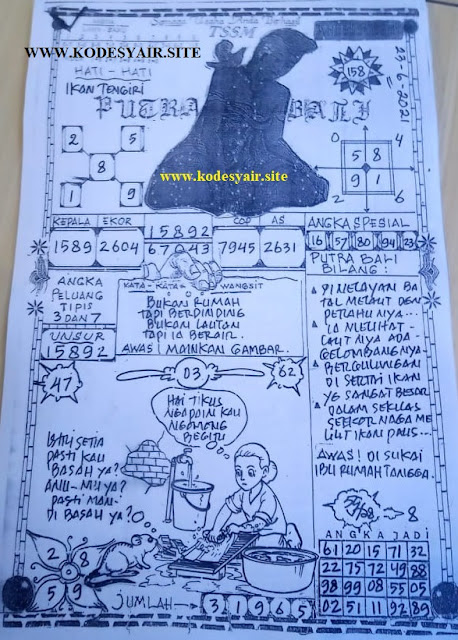 Semoga Usaha Anda Berhasil
TSSM
WWW.KODESYAIR.SITE
HATI - HATI
IKAN TENGIRI
PUTRA BALI
158
23-6-2021
www.kodesyair.site
2 5
8
1 9
0 4
5 8
9 1
2 6
KEPALA EKOR
1589 2604
15892
67043
COP AS
7945 2631
ANGKA SPESIAL
16 57 80 94 23
ANGKA
PELUANG
TIPIS
3 DAN 7
UNSUR
15892
KATA - KATA WANGSIT
BUKAN RUMAH
TAPI BERDINDING
BUKAN LAUTAN
TAPI IA BERAIR.
AWAS! MAINKAN GAMBAR.
PUTRA BALI
BILANG:
LAUTNYA ADA
GELOMBANGNYA-
BERGULUNGAN
DI SERTAI IKAN
YG SANGAT BESAR
DALAM SEKILAS
SEEKOR NAGA ME
LILIT IKAN PAUS...
AWAS! DI SUKAI
IBU RUMAH TANGGA.
47
03
62
HAI TIKUS
NGAPAIN KAU
NGOMONG
BEGITU
ISTRI SETIA
PASTI KAU
BASAH YA?
PASTI MAN-
DI BASAH YA?
2 8
5 9
JUMLAH
3 1 9 6 5
8
ANGKA JADI
61 20 15 71 32
22 75 72 49 88
98 99 08 55 05
02 51 11 92 89